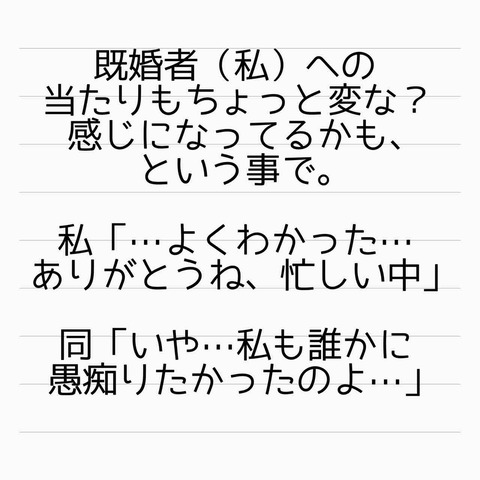 既婚者（私）への
当たりもちょっと変な？
感じになってるかも、
という事で。
私「…よくわかった…
ありがとうね、忙しい中」
同「いや…私も誰かに
愚痴りたかったのよ…」